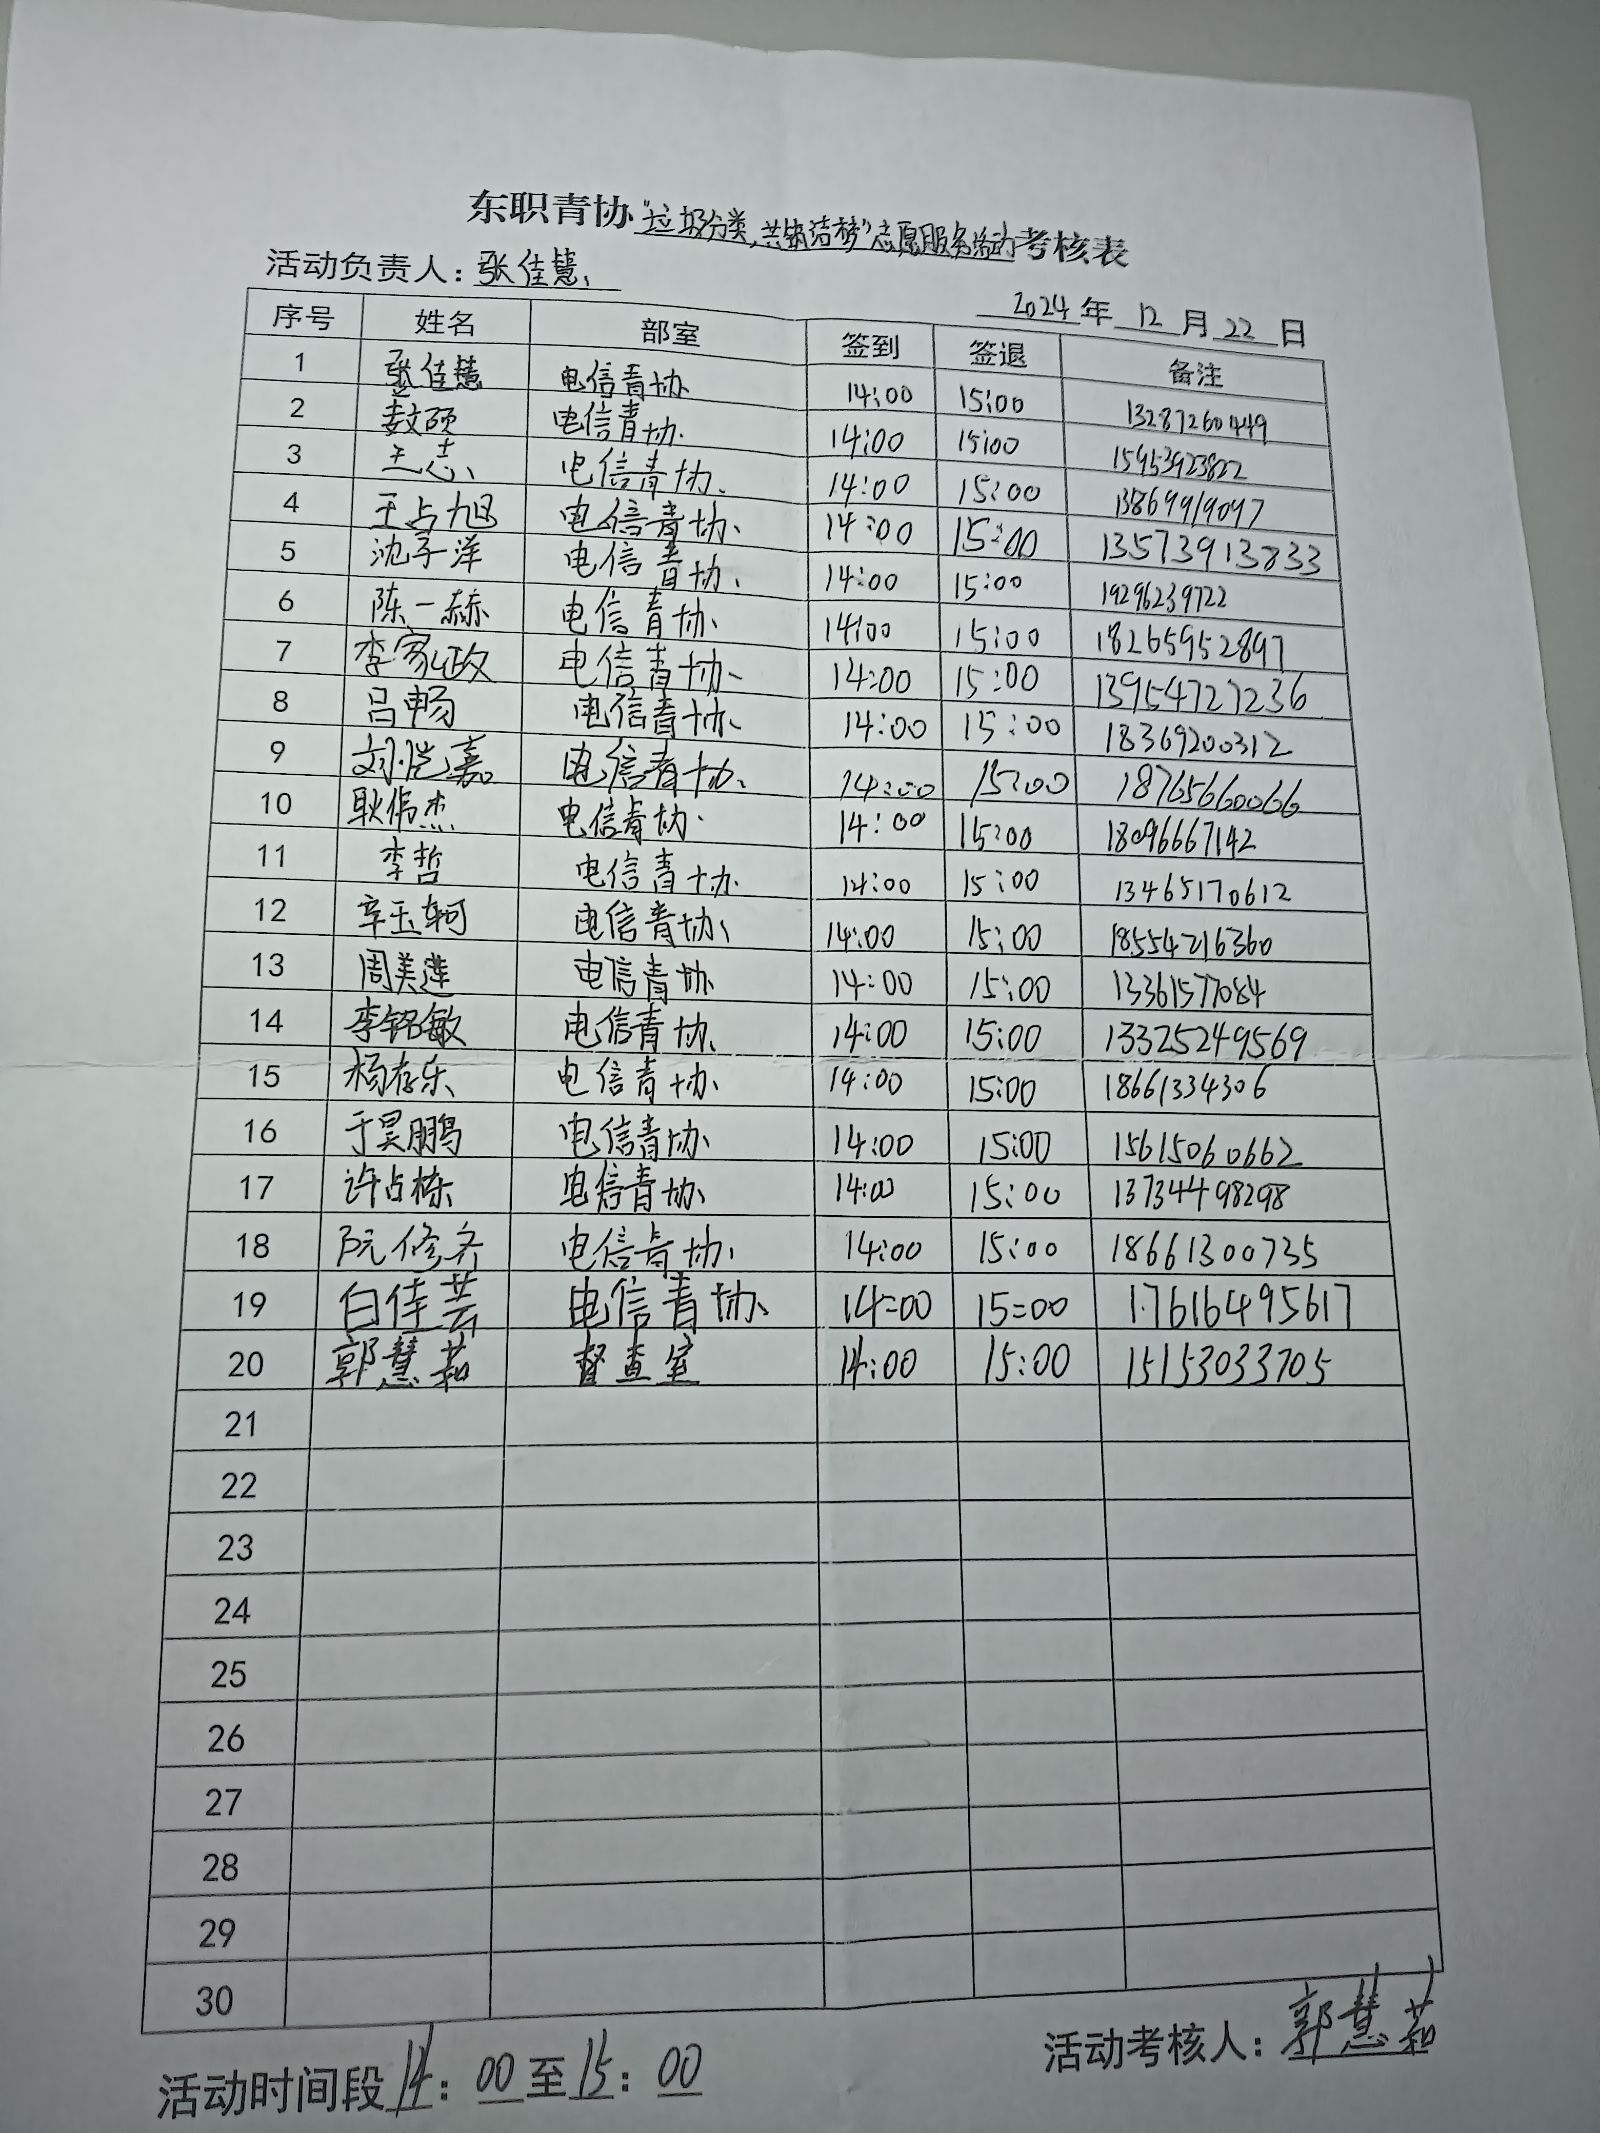 东职青协"垃圾分类,共筑洁梦"志愿服务活动考核表
活动负责人：张佳慧
2024年12月22日
序号 姓名 部室 签到 签退 备注
1 张佳慧 电信青协 14:00 15:00 13287260449
2 硕 电信青协 14:00 15:00 15953923822
3 王志 电信青协 14:00 15:00 13869919097
4 王占旭 电信青协 14:00 15:00 13573913833
5 沈子洋 电信青协 14:00 15:00 19296239722
6 陈一赫 电信青协 14:00 15:00 18265952897
7 李家政 电信青协 14:00 15:00 13954727236
8 吕畅 电信青协 14:00 15:00 18369200312
9 刘恺嘉 电信青协 14:00 15:00 18765660066
10 耿伟杰 电信青协 14:00 15:00 18096667142
11 李哲 电信青协 14:00 15:00 13465170612
12 辛玉轲 电信青协 14:00 15:00 18554216360
13 周美莲 电信青协 14:00 15:00 13361577084
14 李铭敏 电信青协 14:00 15:00 13325249569
15 杨存乐 电信青协 14:00 15:00 18661334306
16 于昊鹏 电信青协 14:00 15:00 15615060662
17 许占栋 电信青协 14:00 15:00 13734498298
18 阮修齐 电信青协 14:00 15:00 18661300735
19 白佳芸 电信青协 14:00 15:00 17616495617
20 郭慧茹 督查室 14:00 15:00 15153033705
21
22
23
24
25
26
27
28
29
30
活动时间段14：00至15：00
活动考核人：郭慧茹